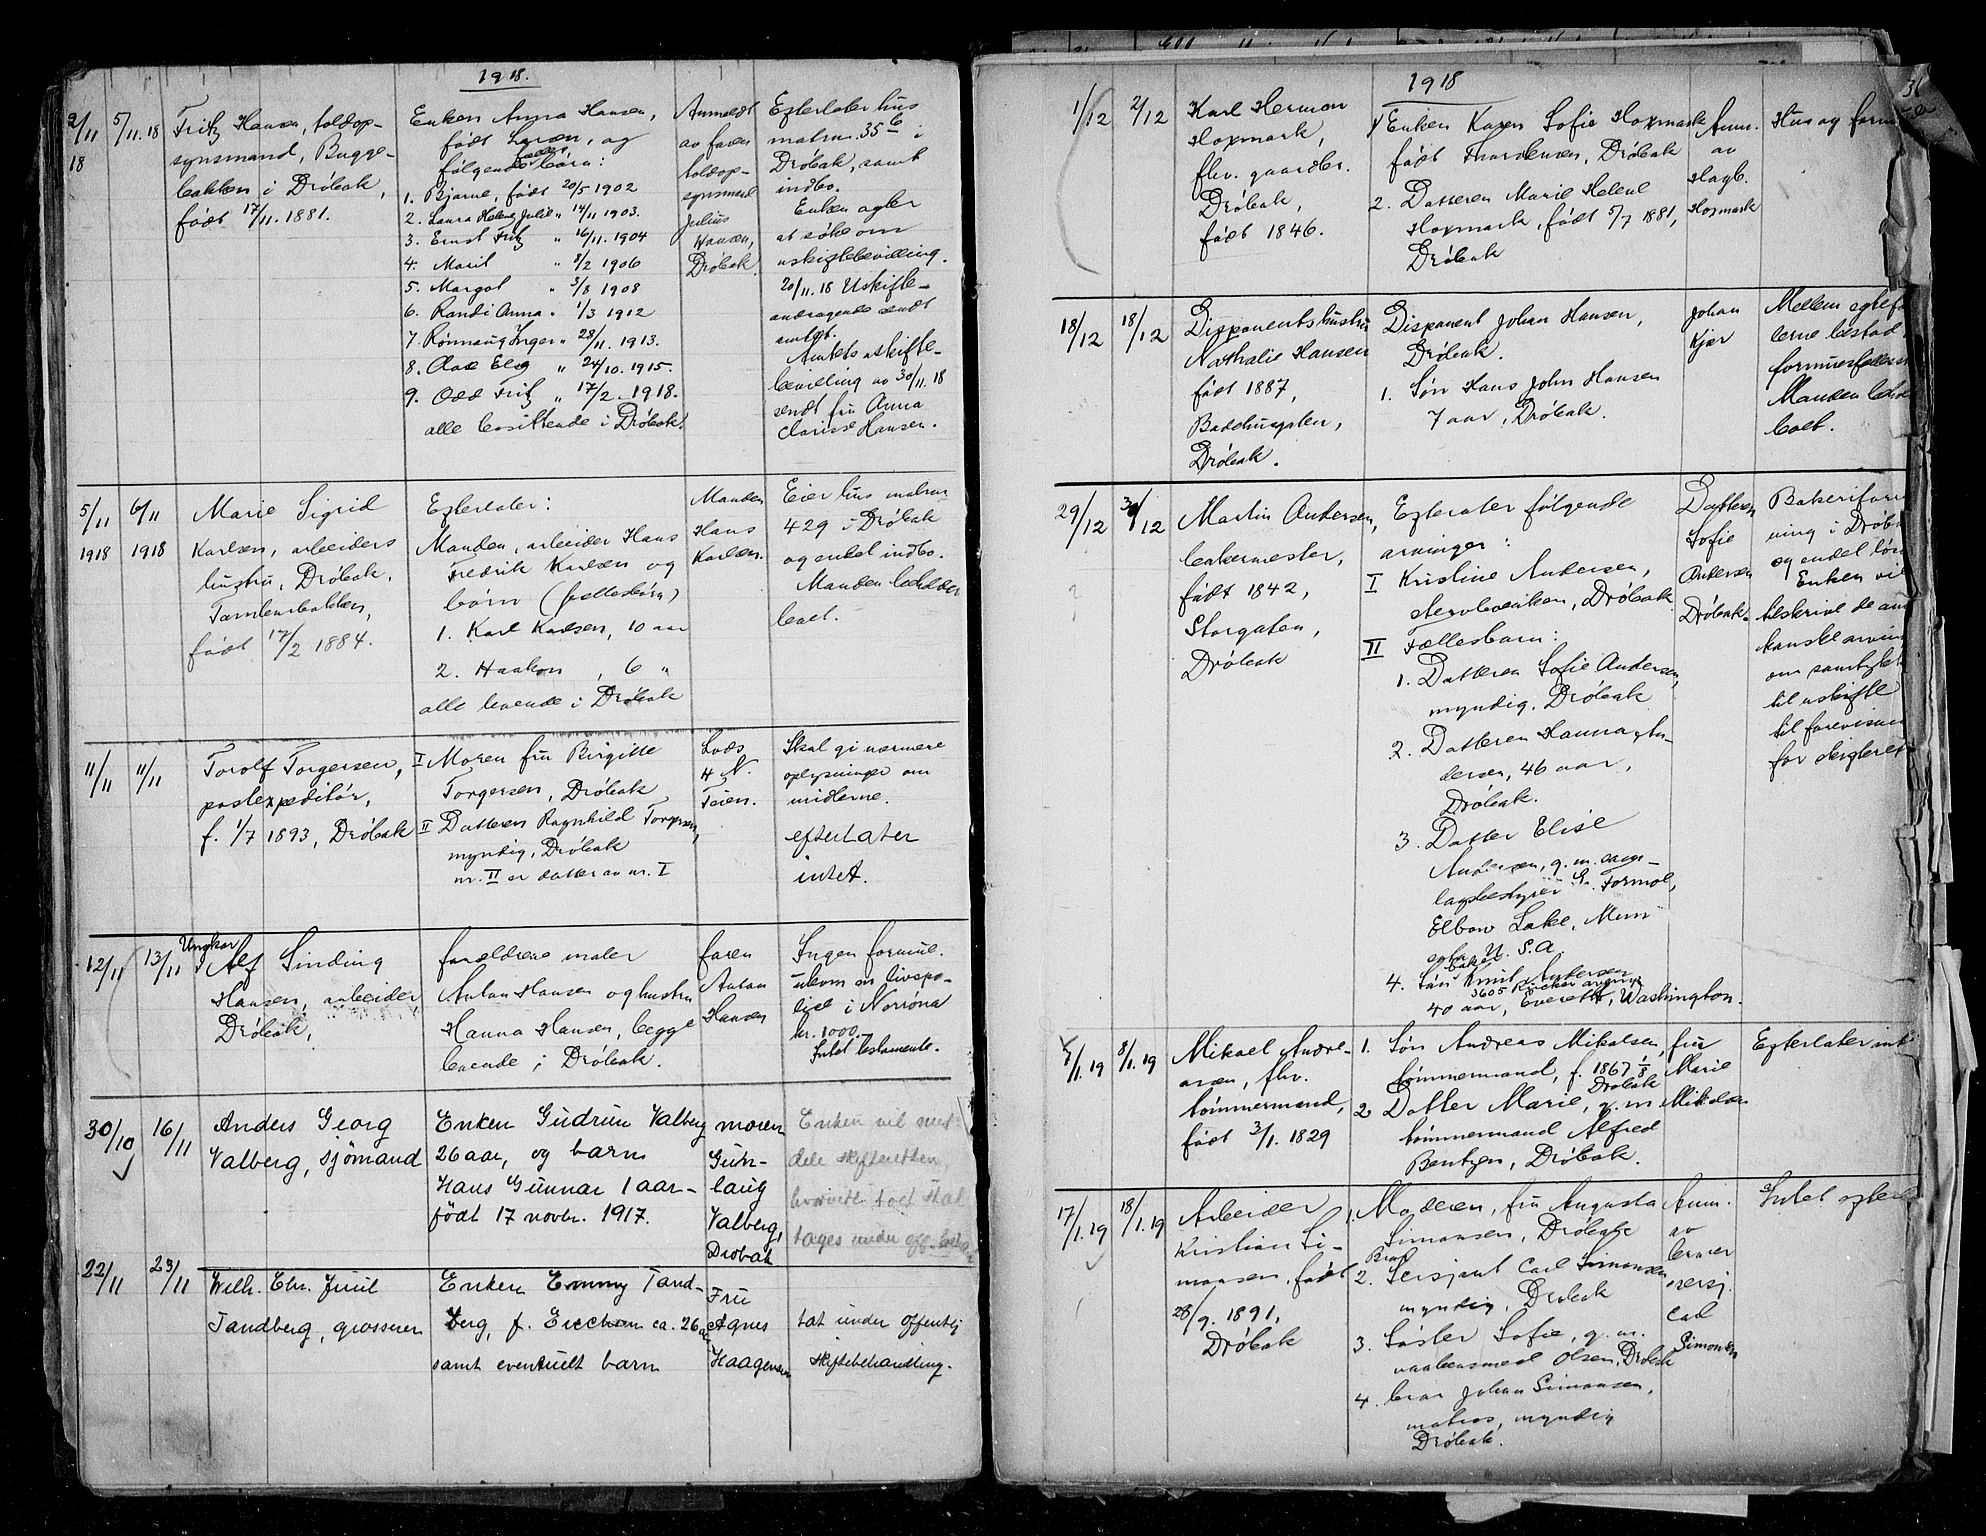 1918.
2/11 18
5/11.18
Fritz Hansen, toldop-
synsmand, Bugge-
bakken i Drøbak,
født 17/11. 1881.
Enken Anna Hansen,
født Larsen, og
følgende fælles børn:
1. Bjarne, født 20/5 1902
2. Laura Helene Julie " 14/11 1903.
3. Ernst Fritz " 16/11. 1904
4. Marit " 8/2 1906
5. Margot " 3/8 1908
6. Randi Anna " 1/3 1912
7. Rønnaug Inger " 28/11. 1913.
8. Aase Elsa " 24/10. 1915.
9. Odd Fritz " 17/2. 1918.
alle bosittende i Drøbak.
Anmeldt
av faren
toldop-
synsmand
Julius
Hansen,
Drøbak.
Efterlater hus
matrnr. 35 b i
Drøbak, samt
indbo.
Enken agter
at søke om
uskiftebevilling.
20/11. 18 Uskifte-
andragende sendt
amtet.
Amtets uskifte-
bevilling av 30/11. 18
sendt fru Anna
Clarisse Hansen.
5/11 1918
6/11 1918
Marie Sigrid
Karlsen, arbeiders
hustru, Drøbak,
født 17/2 1884.
Efterlater:
Manden, arbeider Hans
Fredrik Karlsen og
børn (fællesbørn)
1. Karl Karlsen, 10 aar
2. Haakon , 6 "
alle boende i Drøbak
Manden
Hans
Karlsen.
Eier hus matrnr
429 i Drøbak
og endel indbo.
Manden beholder
boet.
11/11
11/11
Torolf Torgersen,
postexpeditør,
f. 1/7 1893, Drøbak
I Moren fru Birgitte
Torgersen, Drøbak
II Datteren Ragnhild Torgersen,
myndig, Drøbak
nr. II er datter av nr. I
Lods
H N.
Teien.
Skal gi nærmere
oplysninger om
midlerne.
efterlater
intet.
12/11
13/11
Ungkar
Alf Sinding
Hansen, arbeider
Drøbak,
forældrene maler
Anton Hansen og hustru
Hanna Hansen, begge
boende i Drøbak.
faren
Anton
Hansen
Ingen formue.
utkom en livspo-
lise i Norröna
kr. 1000.-
Intet testamente.
30/10
16/11
Anders Georg
Valberg, sjømand
Enken Gudrun Valberg
26 aar, og barn
Hans Gunnar 1 aar -
født 17 novbr. 1917.
moren
Gun-
laug
Valberg,
Drøbak
Enken vil med-
dele skifteretten,
hvorvidt boet skal
tages under off.
22/11
23/11
Wilh. Chr. Juul
Tandberg, grosserer
Enken Emmy Tand-
berg, f. Erichsen ca. 26 aar
samt eventuelt barn
Fru
Agnes
Haagensen
tat under offentlig
skiftebehandling.
1918
1/12
2/12
Karl Herman
Hoxmark,
fhv. gaardbr.
Drøbak,
født 1846.
1 Enken Karen Sofie Hoxmark
født Thordensen, Drøbak
2. Datteren Marie Helene
Hoxmark, født 5/7 1881,
Drøbak
Anm.
av
Hagb.
Hoxmark
Hus og
18/12
18/12
Disponentshustru
Nathalie Hansen
født 1887,
Badehusgaten,
Drøbak.
Disponent Johan Hansen,
Drøbak.
1. Søn Hans John Hansen
7 aar, Drøbak.
Johan
Kjær
Mellem egtefæl
lerne bestod
formuesfælless
Manden beho
boet.
29/12
30/12
Martin Andersen,
bakermester,
født 1842,
Storgaten,
Drøbak
Efterlater følgende
arvinger:
I Kristine Andersen,
stervboenken, Drøbak
II Fællesbarn:
1. Datteren Sofie Andersen,
myndig, Drøbak
2. Datteren Hanna An-
dersen, 46 aar,
Drøbak.
3. Datter Elise
Andersen, g. m.
Elbow Lake, Minni
U. S. A.
4. Søn baker Knut Andersen
3605 Rucker avenue
40 aar, Everett, Washington.
Datteren
Sofie
Andersen
Drøbak.
Bakeriforr
ning i Drøba
og endel løs
Enken vil
tilskrive de am
kanske arvin
om samtykke
til uskifte
til forevisn
for skifteret
7/1.19
8/1.19
Mikael Andre-
asen, fhv.
tømmermand,
født 3/1. 1829
1. Søn Andreas Mikalsen,
tømmermand, f. 1867 1/8
Drøbak
2 Datter Marie, g. m
tømmermand Alfred
Bentzen, Drøbak.
fru
Marie
Mikalsen
Efterlater int
17/1.19
18/1.19
Arbeider
Kristian Si-
monsen, født
28/9. 1891,
Drøbak
1. Moderen, fru Augusta
Simonsen, Drøbak
Bror
2. Sersjant Carl Simonsen
myndig, Drøbak
3. Søster Sofie, g. m.
vaabensmed Olsen, Drøbak
4. bror Johan Simonsen,
matros, myndig
Drøbak.
Anm.
av
broren
oversj.
Carl
Simonsen
Intet efterl